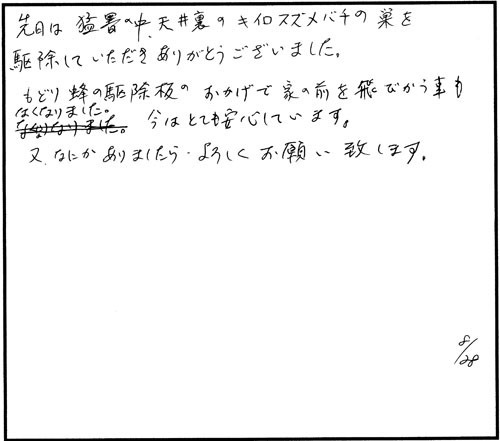 先日は 猛暑の中、天井裏のキイロスズメバチの巣を
駆除していただきありがとうございました。
もどり蜂の駆除板の おかげで 家の前を飛びかう事も
なくなりました。
今はとても安心しています。
又、なにかありましたら よろしく お願い致します。
8/28